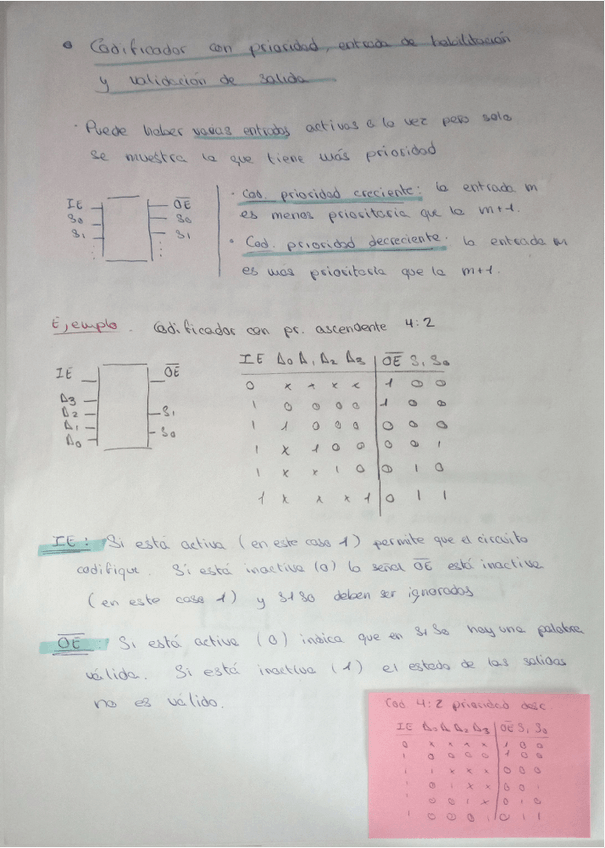 • Codificador con prioridad, entrada de habilitación
y validación de salida
· Puede haber varias entradas activas a la vez pero solo
se muestra la que tiene más prioridad
IE
S0
S1
⋮
OE̅
S0
S1
⋮
· Cod. prioridad creciente: la entrada m
es menos prioritaria que la m+1.
• Cod. prioridad decreciente: la entrada m
es más prioritaria que la m+1.
Ejemplo. Codificador con pr. ascendente 4:2
IE
A3
A2
A1
A0
OE̅
S1
S0
IE A0 A1 A2 A3 | OE̅ S1 S0
0 x x x x | 1 0 0
1 0 0 0 0 | 1 0 0
1 1 0 0 0 | 0 0 0
1 x 1 0 0 | 0 0 1
1 x x 1 0 | 0 1 0
1 x x x 1 | 0 1 1
IE: Si está activa (en este caso 1) permite que el circuito
codifique. Si está inactiva (0) la señal OE̅ está inactiva
(en este caso 1) y S1 S0 deben ser ignorados
OE̅: Si está activa (0) indica que en S1 S0 hay una palabra
válida. Si está inactiva (1) el estado de las salidas
no es válido.
Cod 4:2 prioridad desc
IE A0 A1 A2 A3 | OE̅ S1 S0
0 x x x x | 1 0 0
1 0 0 0 0 | 1 0 0
1 1 x x x | 0 0 0
1 0 1 x x | 0 0 1
1 0 0 1 x | 0 1 0
1 0 0 0 1 | 0 1 1